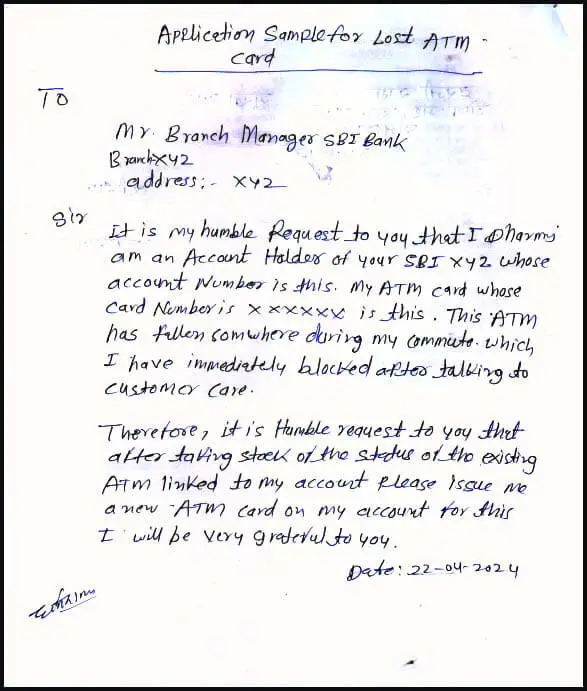 Application Sample for Lost ATM -
Card
TO
Mr. Branch Manager SBI Bank
Branch XYZ
address:- XYZ
Sir
It is my humble Request to you that I Dharmj
am an Account Holder of your SBI XYZ whose
account Number is this. My ATM card whose
Card Number is XXXXXXX is this. This ATM
has fallen somwhere during my commute. which
I have immediately blocked after talking to
customer care.
Therefore, it is Humble request to you that
after taking stock of the status of the existing
ATM linked to my account please issue me
a new ATM card on my account for this
I will be very grateful to you.
Date: 22-04-2024